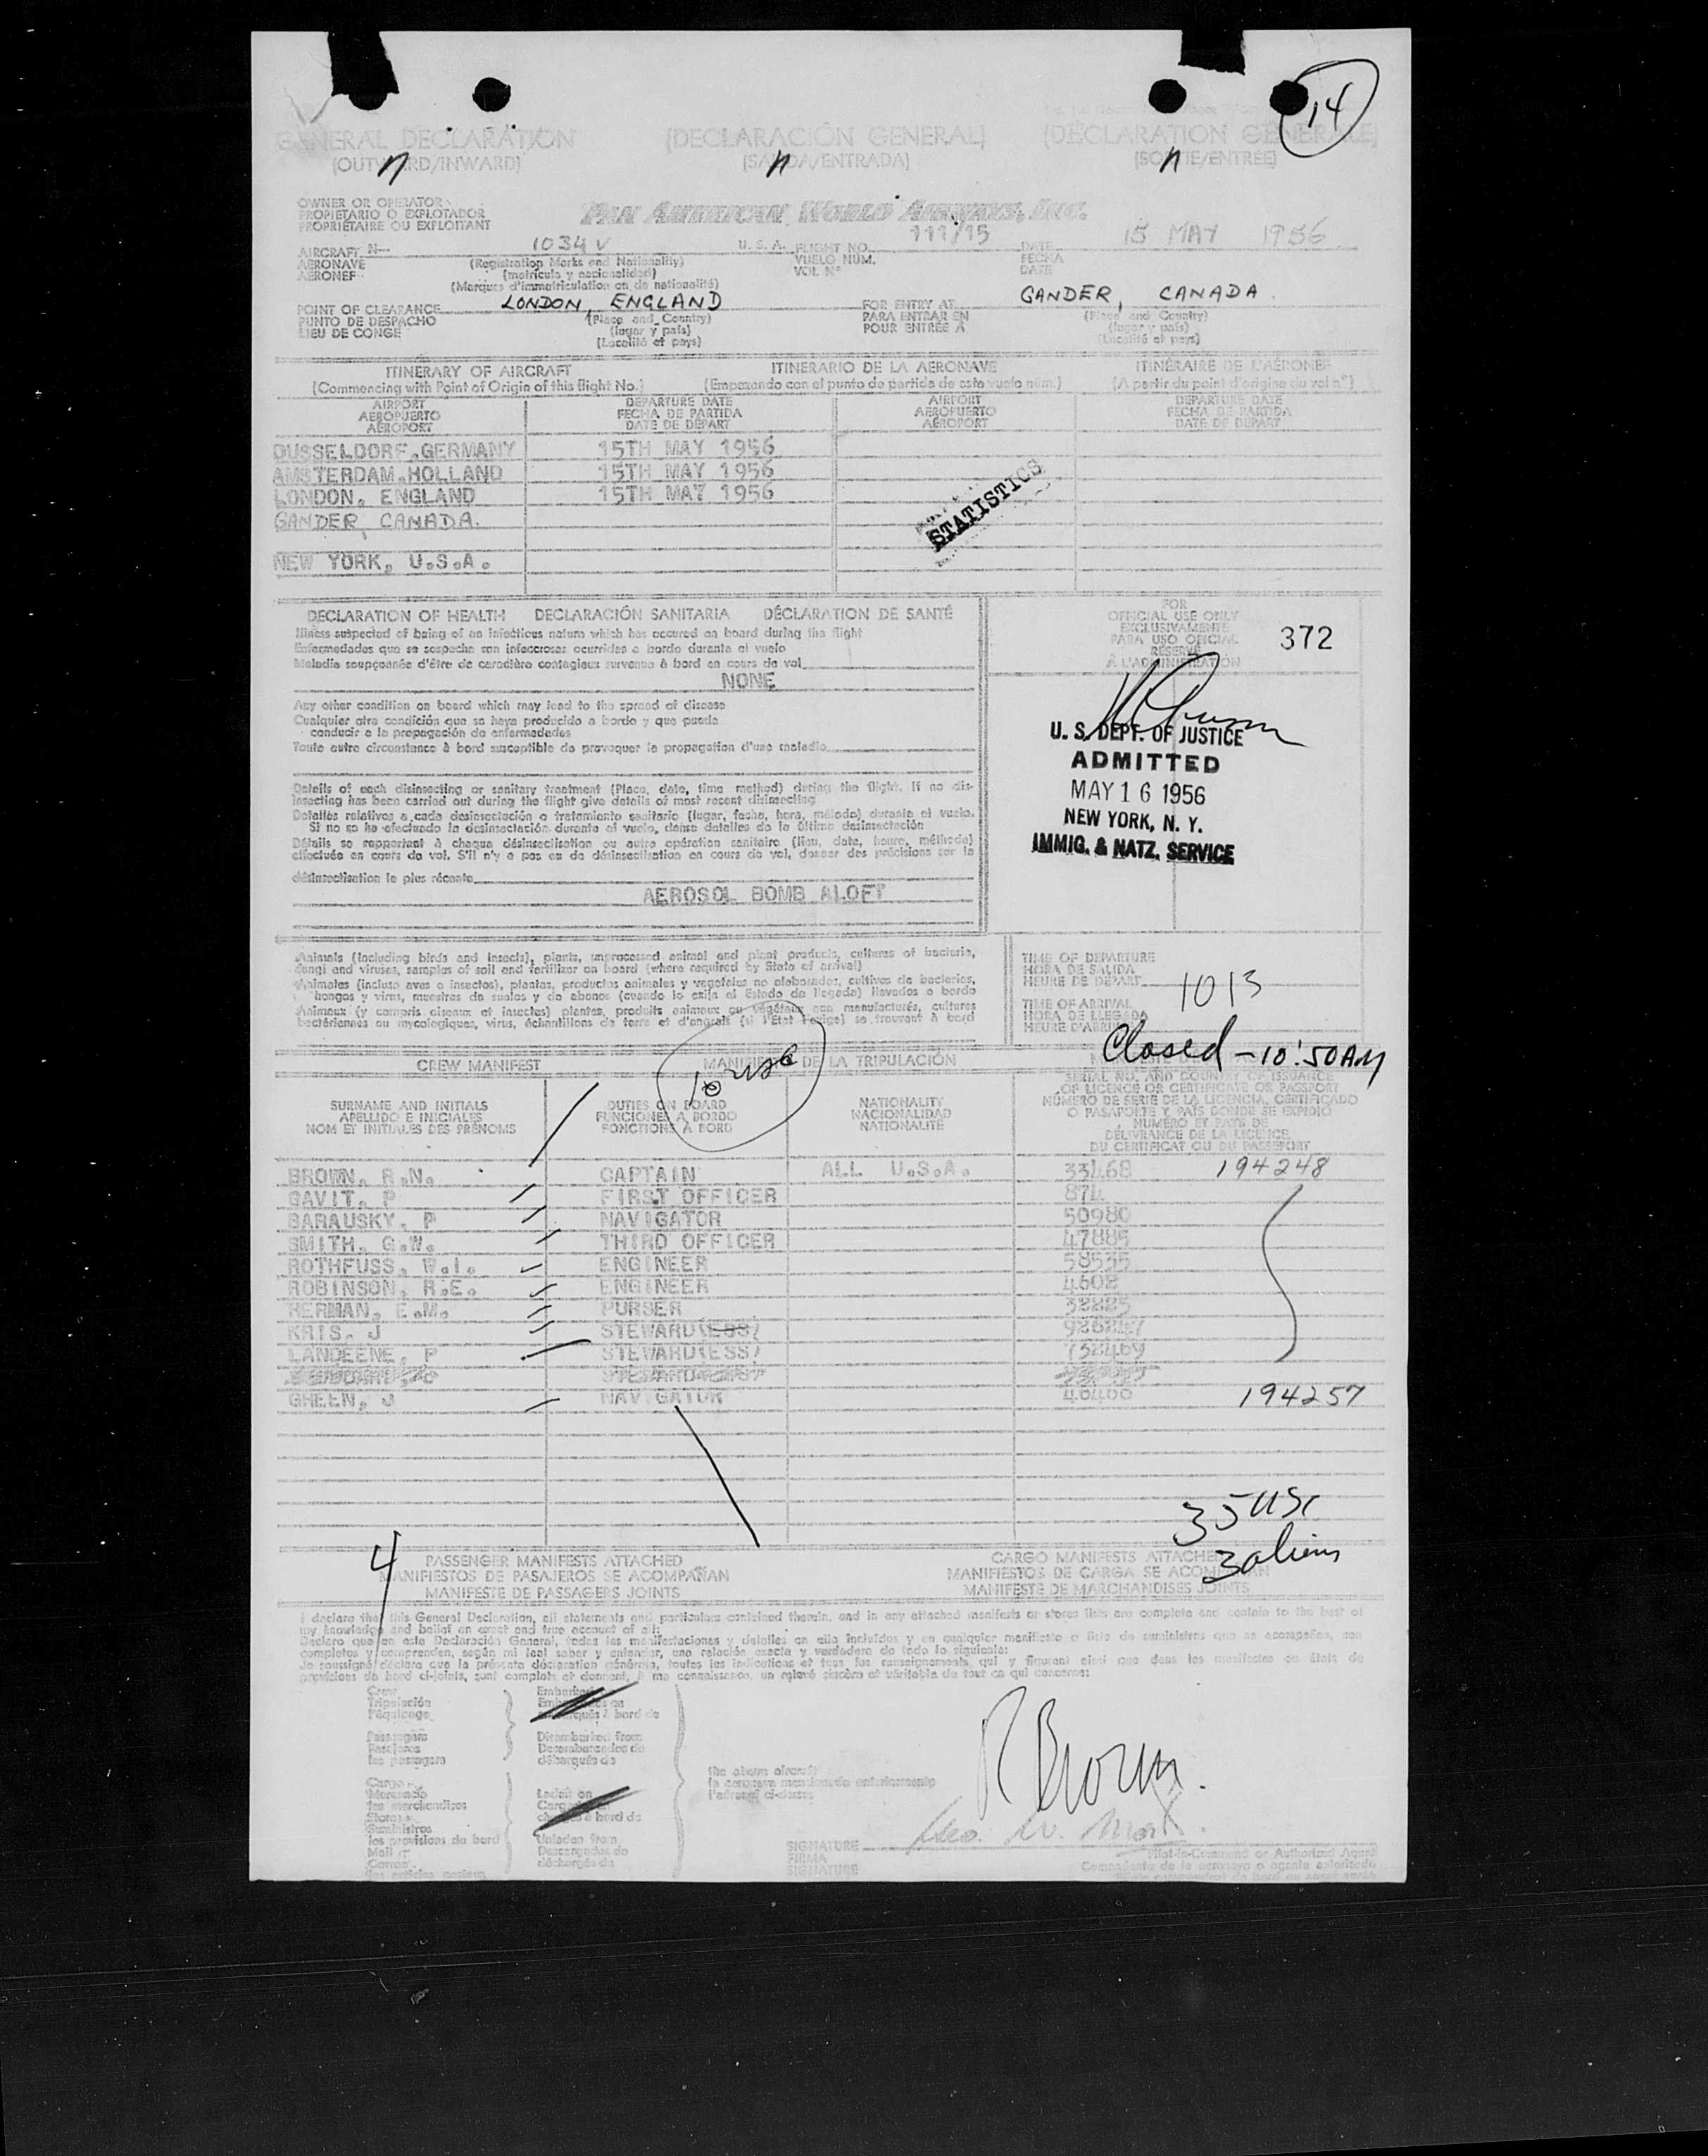 14
GENERAL DECLARATION (DECLARACIÓN GENERAL) (DÉCLARATION GÉNÉRALE)
(OUTWARD/INWARD) (SALIDA/ENTRADA) (SORTIE/ENTRÉE)
OWNER OR OPERATOR
PROPIETARIO O EXPLOTADOR
PROPRIÉTAIRE OU EXPLOITANT
PAN AMERICAN WORLD AIRWAYS, INC.
AIRCRAFT N— 1034V U. S. A. FLIGHT NO. 111/15 DATE 15 MAY 1956
AERONAVE (Registration Marks and Nationality) VUELO NÚM. FECHA
AÉRONEF (matrícula y nacionalidad) VOL Nº DATE
(Marques d'immatriculation en de nationalité)
POINT OF CLEARANCE LONDON, ENGLAND FOR ENTRY AT GANDER, CANADA.
PUNTO DE DESPACHO (Place and Country) PARA ENTRAR EN (Place and Country)
LIEU DE CONGÉ (lugar y país) POUR ENTRÉE À (lugar y país)
(Localité et pays) (Localité et pays)
ITINERARY OF AIRCRAFT ITINERARIO DE LA AERONAVE ITINÉRAIRE DE L'AÉRONEF
(Commencing with Point of Origin of this flight No.) (Empezando con el punto de partida de este vuelo núm.) (A partir du point d'origine du vol nº)
AIRPORT DEPARTURE DATE AIRPORT DEPARTURE DATE
AEROPUERTO FECHA DE PARTIDA AEROPUERTO FECHA DE PARTIDA
AÉROPORT DATE DE DÉPART AÉROPORT DATE DE DÉPART
DUSSELDORF, GERMANY 15TH MAY 1956
AMSTERDAM, HOLLAND 15TH MAY 1956
LONDON, ENGLAND 15TH MAY 1956
GANDER, CANADA.
NEW YORK, U.S.A.
STATISTICS
DECLARATION OF HEALTH DECLARACIÓN SANITARIA DÉCLARATION DE SANTÉ
Illness suspected of being of an infectious nature which has occured on board during the flight
Enfermedades que se sospecha son infecciosas ocurridas a bordo durante el vuelo
Maladie soupçonnée d'être de caractère contagieux survenue à bord en cours de vol
NONE
Any other condition on board which may lead to the spread of disease
Cualquier otra condición que se haya producido a bordo y que pueda
conducir a la propagación de enfermedades
Toute autre circonstance à bord susceptible de provoquer la propagation d'une maladie
Details of each disinsecting or sanitary treatment (Place, date, time method) during the flight. If no dis-
insecting has been carried out during the flight give details of most recent disinsecting
Detalles relativos a cada desinsectación o tratamiento sanitario (lugar, fecha, hora, método) durante el vuelo.
Si no se ha efectuado la desinsectación durante el vuelo, dense detalles de la última desinsectación
Détails se rapportant à chaque désinsectisation ou autre opération sanitaire (lieu, date, heure, méthode)
effectuée en cours de vol. S'il n'y a pas eu de désinsectisation en cours de vol, donner des précisions sur la
désinsectisation la plus récente
AEROSOL BOMB ALOFT
FOR
OFFICIAL USE ONLY
EXCLUSIVAMENTE
PARA USO OFICIAL
RÉSERVÉ
À L'ADMINISTRATION
372
U. S. DEPT. OF JUSTICE
ADMITTED
MAY 16 1956
NEW YORK, N. Y.
IMMIG. & NATZ. SERVICE
Animals (including birds and insects), plants, unprocessed animal and plant products, cultures of bacteria,
fungi and viruses, samples of soil and fertilizer on board (where required by State of arrival)
Animales (incluso aves e insectos), plantas, productos animales y vegetales no elaborados, cultivos de bacterias,
hongos y virus, muestras de suelos y de abonos (cuando lo exija el Estado de llegada) llevados a bordo
Animaux (y compris oiseaux et insectes) plantes, produits animaux ou végétaux non manufacturés, cultures
bactériennes ou mycologiques, virus, échantillons de terre et d'engrais (si l'État l'exige) se trouvant à bord
TIME OF DEPARTURE
HORA DE SALIDA
HEURE DE DÉPART
1013
TIME OF ARRIVAL
HORA DE LLEGADA
HEURE D'ARRIVÉE
Closed - 10:50 AM
CREW MANIFEST MANIFIESTO DE LA TRIPULACIÓN
10 USC
SURNAME AND INITIALS DUTIES ON BOARD NATIONALITY SERIAL NO. AND COUNTRY OF ISSUANCE
APELLIDO E INICIALES FUNCIONES A BORDO NACIONALIDAD OF LICENCE OR CERTIFICATE OR PASSPORT
NOM ET INITIALES DES PRÉNOMS FONCTIONS À BORD NATIONALITÉ NÚMERO DE SERIE DE LA LICENCIA, CERTIFICADO
O PASAPORTE Y PAÍS DONDE SE EXPIDIÓ
NUMÉRO ET PAYS DE
DÉLIVRANCE DE LA LICENCE,
DU CERTIFICAT OU DU PASSEPORT
BROWN, R.N. CAPTAIN ALL U.S.A. 33468 194248
GAVIT, P FIRST OFFICER 874
BARAUSKY, P NAVIGATOR 50980
SMITH, G.W. THIRD OFFICER 47885
ROTHFUSS, W.I. ENGINEER 58535
ROBINSON, R.E. ENGINEER 4608
HERMAN, E.M. PURSER 38825
KRIS, J STEWARD(ESS)
LANDEENE, P STEWARD(ESS) 738469
GREEN, J NAVIGATOR 40400 194257
35 USC
3 aliens
4 PASSENGER MANIFESTS ATTACHED CARGO MANIFESTS ATTACHED
MANIFIESTOS DE PASAJEROS SE ACOMPAÑAN MANIFIESTOS DE CARGA SE ACOMPAÑAN
MANIFESTE DE PASSAGERS JOINTS MANIFESTE DE MARCHANDISES JOINTS
I declare that this General Declaration, all statements and particulars contained therein, and in any attached manifests or stores lists are complete and contain to the best of
my knowledge and belief an exact and true account of all:
Declaro que en esta Declaración General, todas las manifestaciones y detalles en ella incluidos y en cualquier manifiesto o lista de suministros que se acompañen, son
completos y comprenden, según mi leal saber y entender, una relación exacta y verdadera de todo lo siguiente:
Je soussigné déclare que la présente déclaration générale, toutes les indications et tous les renseignements qui y figurent ainsi que dans les manifestes ou états de
provisions de bord ci-joints, sont complets et donnent, à ma connaissance, un relevé sincère et véritable de tout ce qui concerne:
Crew
Tripulación
l'équipage
Passengers
Pasajeros
les passagers
Cargo
Mercancía
les marchandises
Stores
Suministros
les provisions de bord
Mail
Correo
Embarked
Embarcados en
embarqués à bord de
Disembarked from
Desembarcados de
débarqués de
Laden on
Cargados en
chargés à bord de
Unladen from
Descargados de
déchargés de
the above aircraft
la aeronave mencionada anteriormente
l'aéronef ci-dessus
R Brown.
SIGNATURE
FIRMA
SIGNATURE
Pilot-in-Command or Authorized Agent
Comandante de la aeronave o agente autorizado